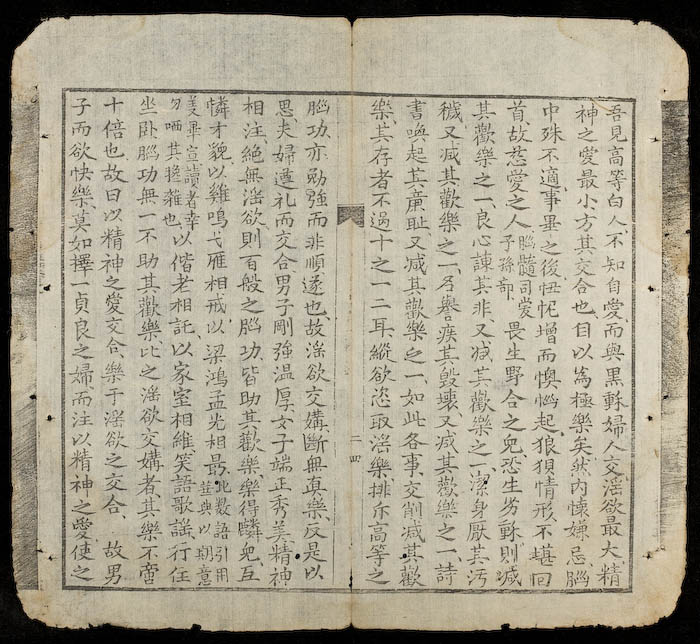 吾見高等白人、不知自愛、而與黑穌婦人交、淫欲最大、精
神之愛最小、方其交合也、自以為極樂矣、然內懷嫌忌、腦
中殊不適、事畢之後、忸怩增而懊惱起、狼狽情形、不堪回
首、故慈愛之人、腦髓司愛子孫部畏生野合之兒、恐生劣穌、則減
其歡樂之一、良心諫其非、又减其歡樂之一、潔身厭其污
穢、又减其歡樂之一、名譽疾其毀壞、又减其歡樂之一、詩
書喚起其廉耻、又减其歡樂之一、如此各事、交削减其歡
樂、其存者不過十之一二耳、縱欲恣取淫樂、排斥高等之
二四
腦功、亦勉強而非順遂也、故淫欲交媾、斷無真樂、反是以
思、夫婦遵礼而交合、男子剛強温厚、女子端正秀美、精神
相注、絕無淫欲、則百般之腦功、皆助其歡樂、樂得麟兒、互
憐才貌、以雞鳴弋雁相戒、以梁鴻孟光相最、此数語引用並典以期意
美畢宣讀者幸勿哂其雜也以偕老相託、以家室相維、笑語歌謠、行住
坐臥、腦功無一不助其歡樂、比之淫欲交媾者、其樂不啻
十倍也、故曰以精神之愛交合、樂于淫欲之交合、　故男
子而欲快樂、莫如擇一貞良之婦、而注以精神之愛、使之